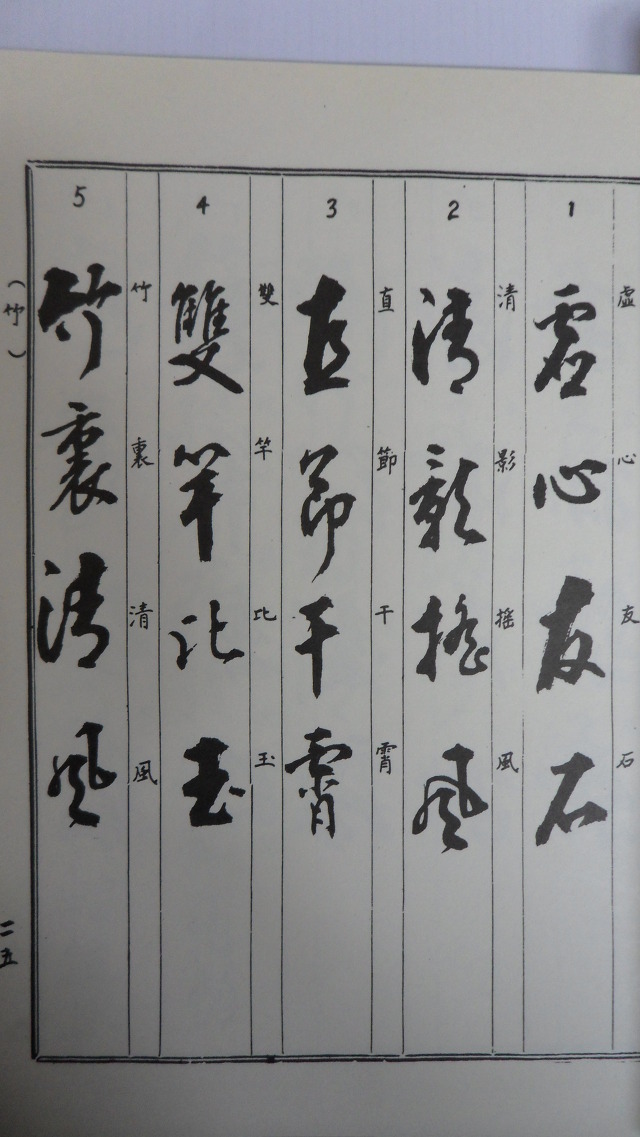 虛心友石
1
虛心友石
清影搖風
2
清影搖風
直節干霄
3
直節干霄
雙竿比玉
4
雙竿比玉
竹裏清風
5
竹裏清風
（竹）
二五